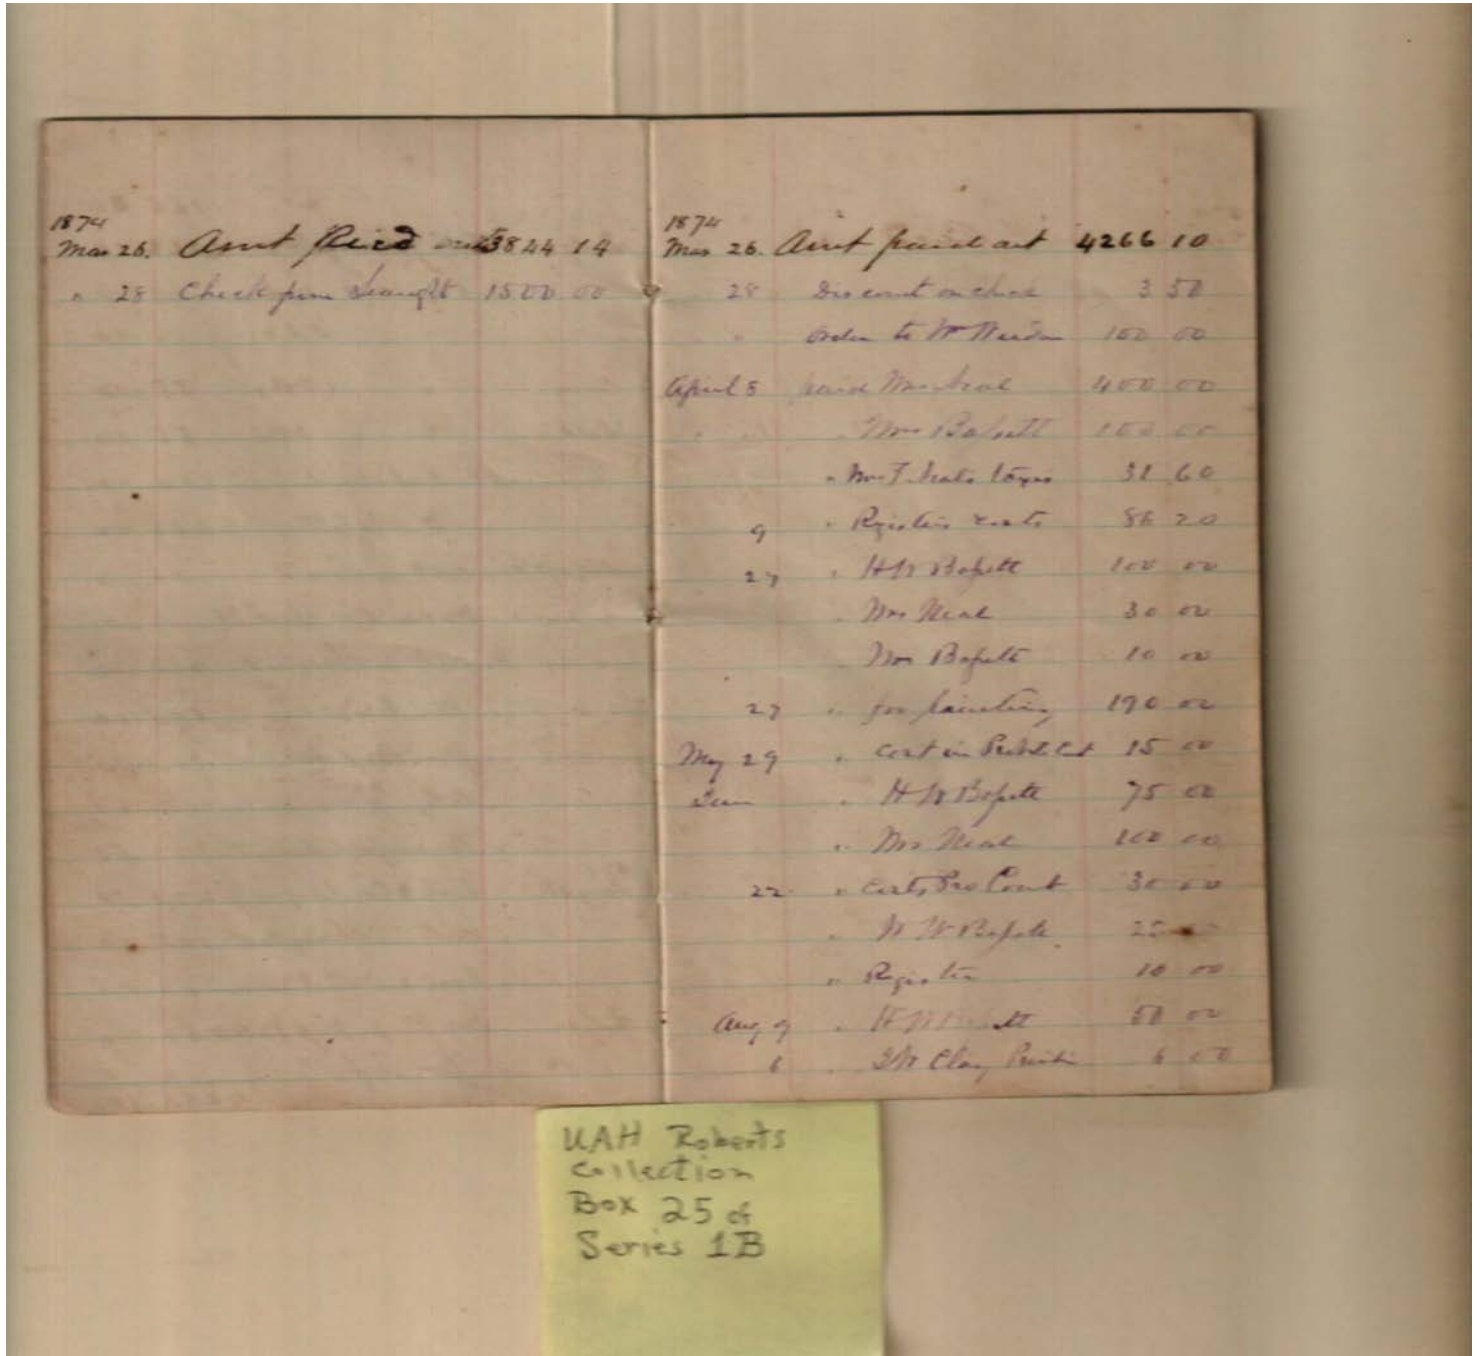 1874
Mar 26. Amt Recd 3844 14
" 28 Check from draught 1500 00
1874
Mar 26. Amt paid out 4266 10
28 Discount on check 3 50
" Order to Wm Weeden 100 00
April 8 paid Mrs Neal 400 00
" " " Mrs Bassett 100 00
" Mrs F. Neals taxes 31 60
9 " Registers costs 86 20
27 " H W Bassett 100 00
" Mrs Neal 30 00
" Mrs Bassett 10 00
27 " for painting 190 00
May 29 " Cost in Probt Ct 15 00
June " H W Bassett 75 00
" Mrs Neal 100 00
22 " Costs Pro Court 30 00
" H W Bassett 25
" Register 10 00
Aug 9 " H W 50 00
6 " J W Clay Printin 6 00
UAH Roberts
Collection
Box 25 of
Series 1B